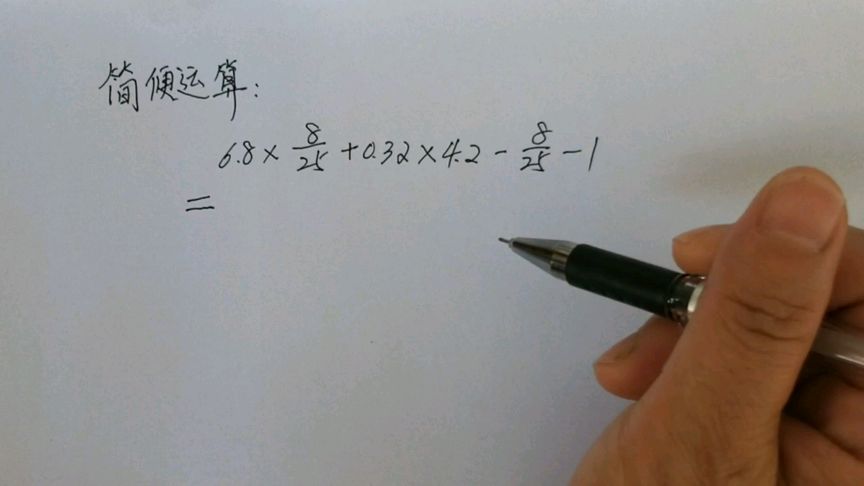 简便运算:
6.8 × 8/25 + 0.32 × 4.2 - 8/25 - 1
=